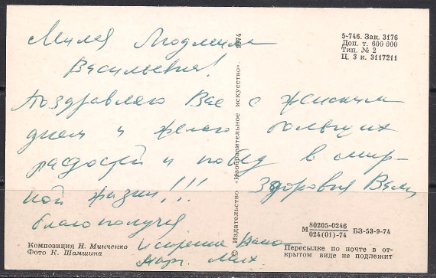 Милая Людмила
Васильевна!
Поздравляю Вас с женским
днем и желаю больших
радостей и побед в мир-
ной жизни!!!
Здоровья Вам,
благополучия
Искренне Ваша
5-746. Зак. 3176
Доп. т. 600 000
Тип. № 2
Ц. 3 к. 3117211
© Издательство «Изобразительное искусство». 1974
Композиция Н. Минченко
Фото К. Шамшина
М 80205-0246 БЗ-53-9-74
024(01)-74
Пересылке по почте в от-
крытом виде не подлежит